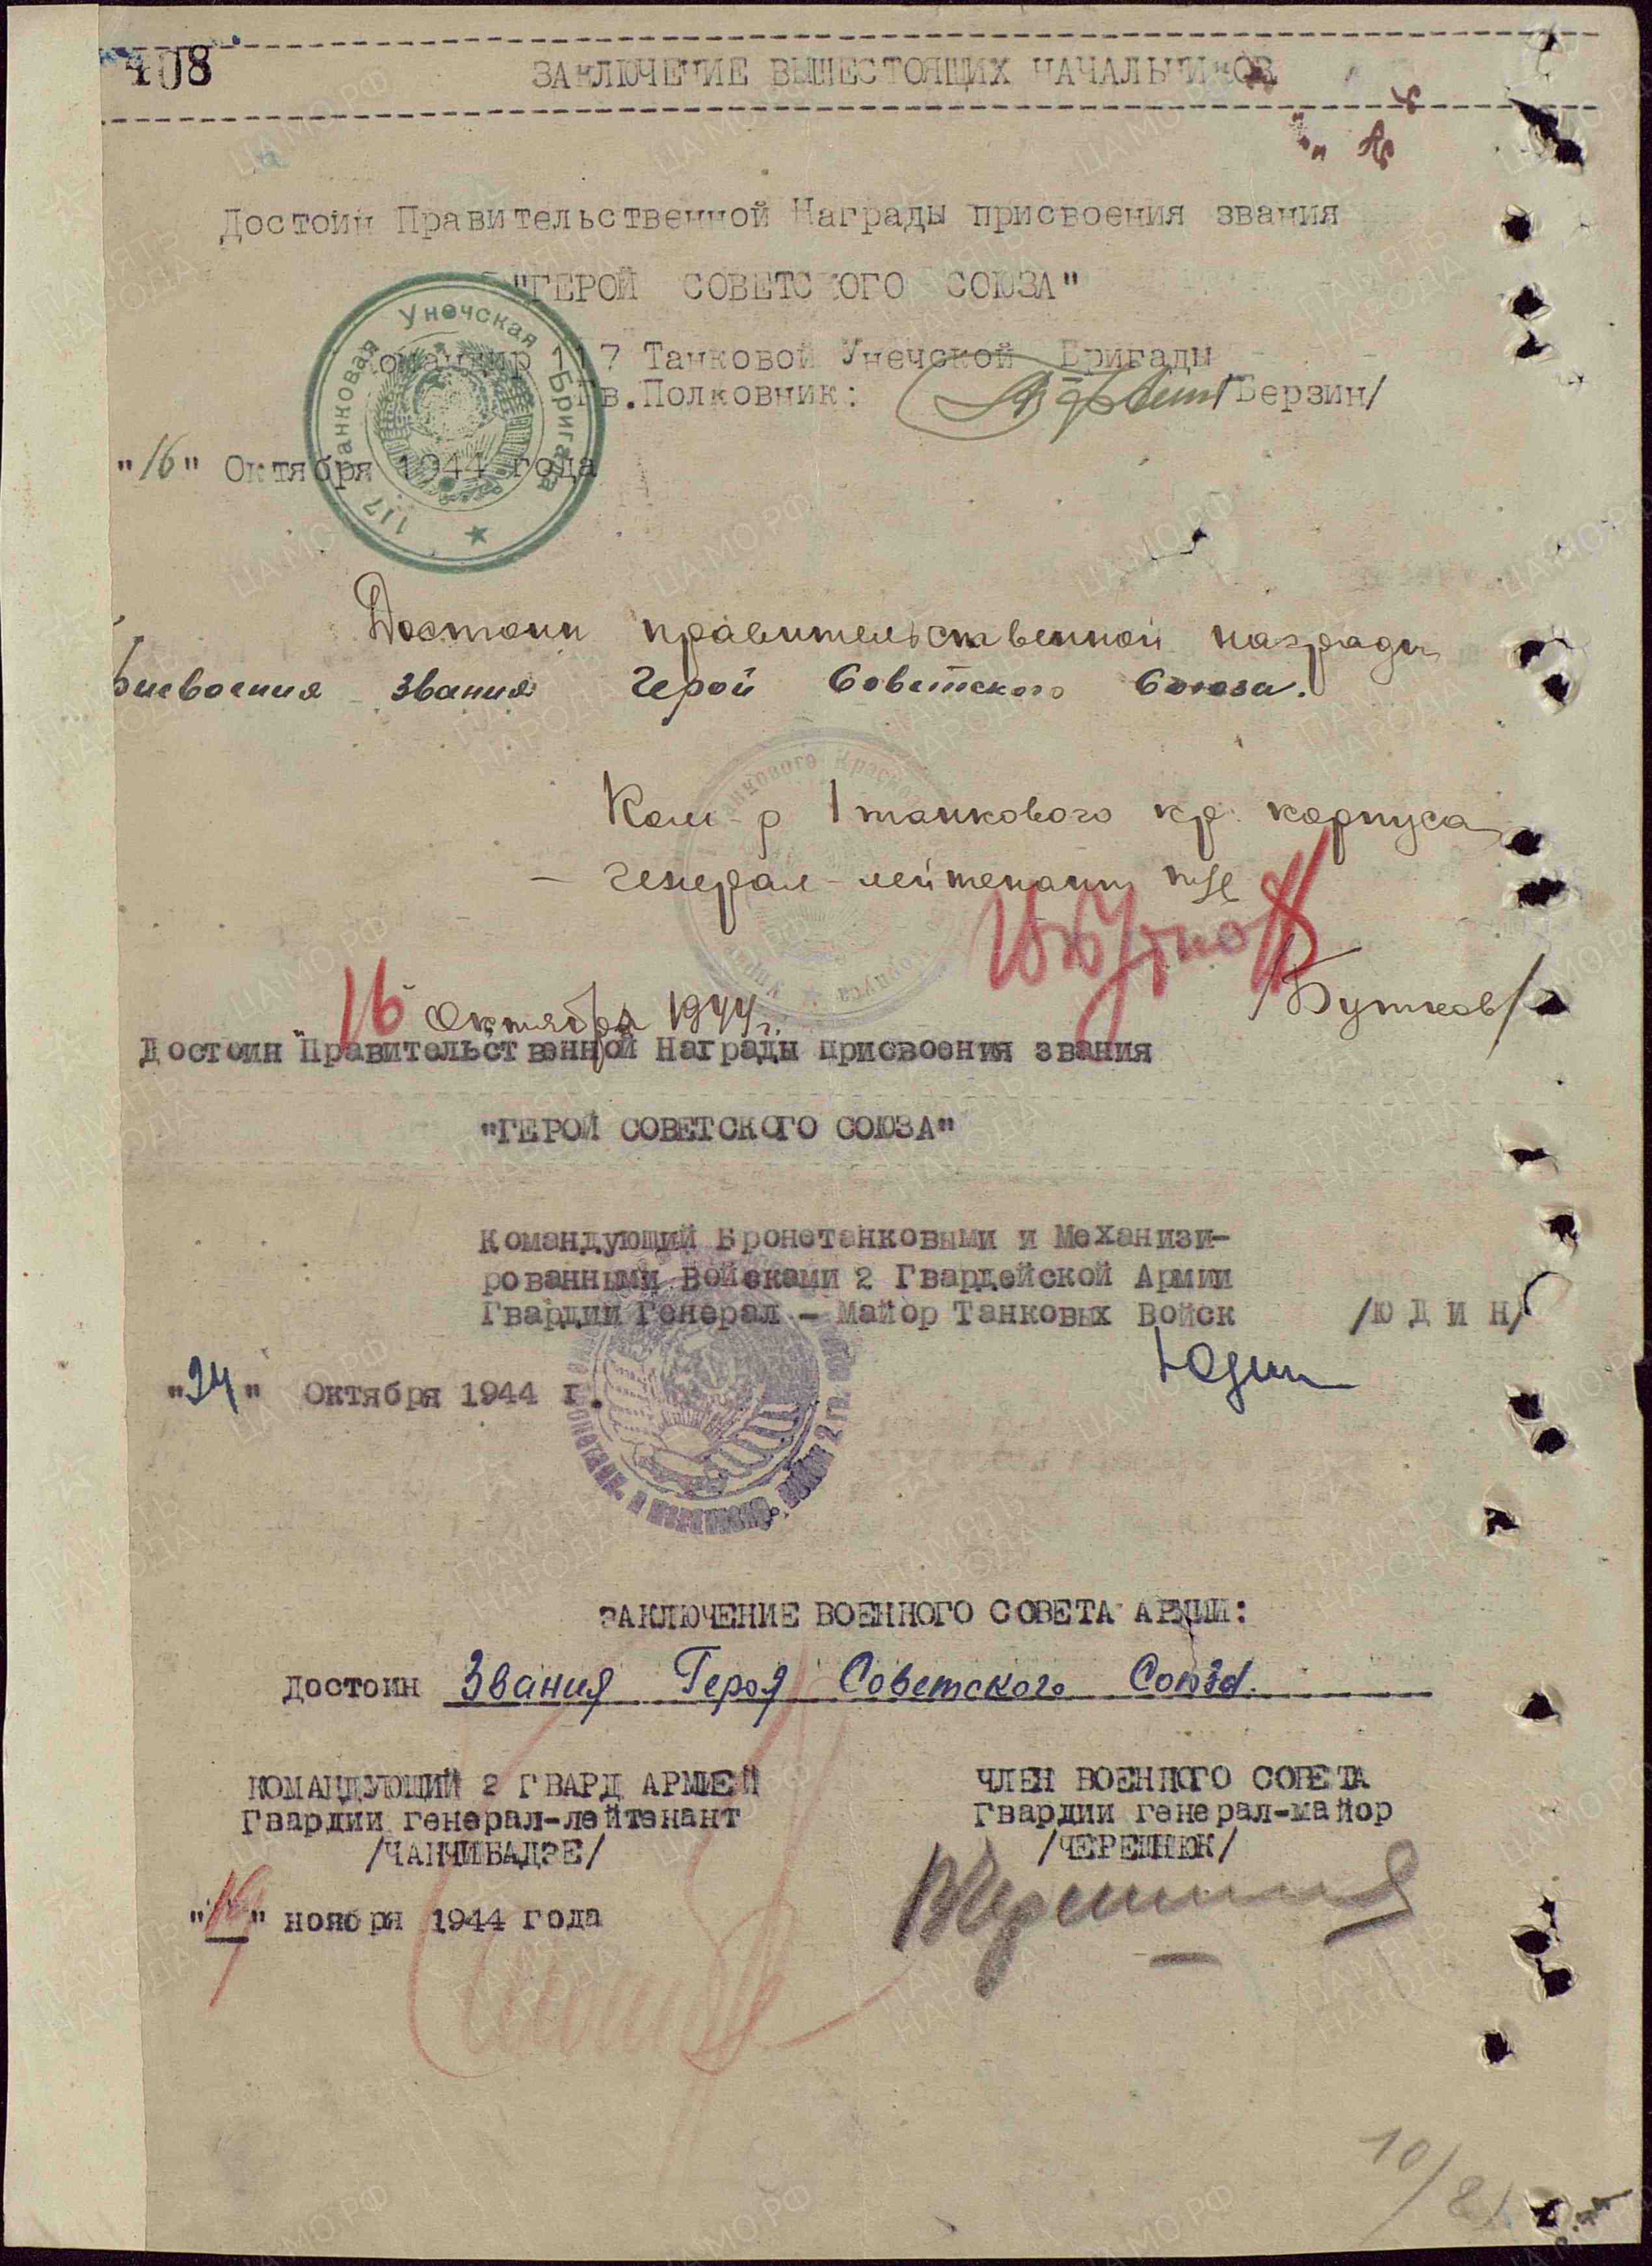 408
ЗАКЛЮЧЕНИЕ ВЫШЕСТОЯЩИХ НАЧАЛЬНИКОВ
Достоин Правительственной Награды присвоения звания
"ГЕРОЙ СОВЕТСКОГО СОЮЗА"
Командир 117 Танковой Унечской Бригады
Гв.Полковник: /Берзин/
"16" Октября 1944 года
117 Танковая Унечская Бригада
Достоин правительственной награды
присвоения звания Герой Советского Союза.
Ком-р 1 танкового кр. корпуса
генерал-лейтенант т/в
/Бутков/
16 Октября 1944 г.
Достоин Правительственной Награды присвоения звания
"ГЕРОЙ СОВЕТСКОГО СОЮЗА"
Командующий Бронетанковыми и Механизи-
рованными Войсками 2 Гвардейской Армии
Гвардии Генерал - Майор Танковых Войск /Ю Д И Н/
Юдин
"24" Октября 1944 г.
ЗАКЛЮЧЕНИЕ ВОЕННОГО СОВЕТА АРМИИ:
достоин Звания Героя Советского Союза.
КОМАНДУЮЩИЙ 2 ГВАРД АРМИЕЙ
Гвардии генерал-лейтенант
/ЧАНЧИБАДЗЕ/
ЧЛЕН ВОЕННОГО СОВЕТА
Гвардии генерал-майор
/ЧЕРЕШНЮК/
ноября 1944 года
ПАМЯТЬ НАРОДА
ЦАМО.РФ